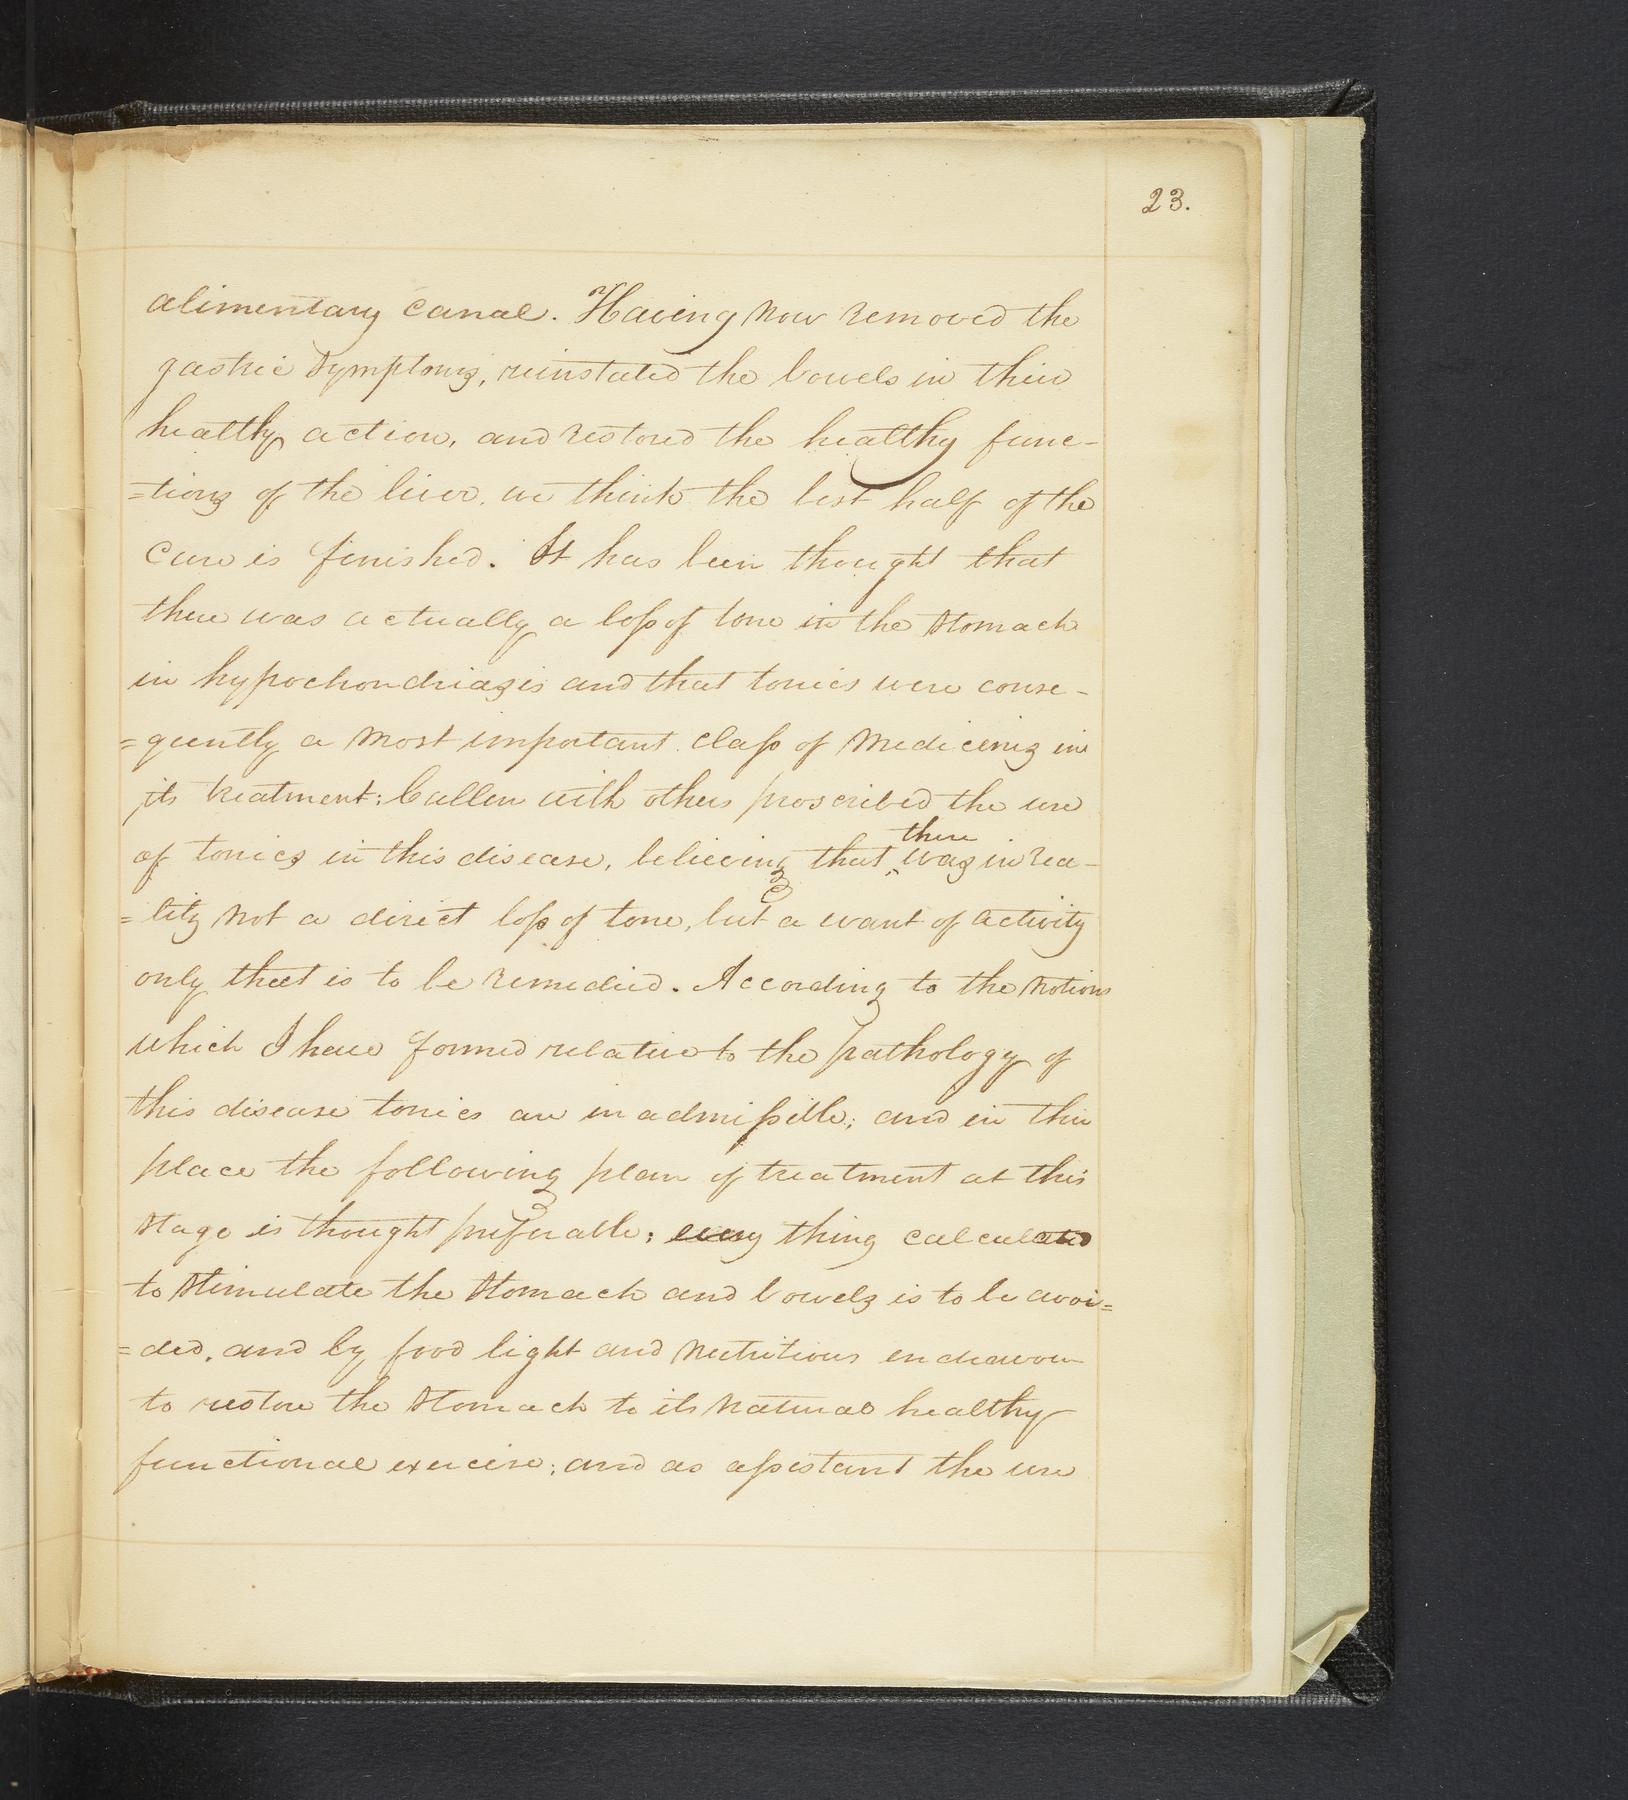 23.
alimentary canal. Having now removed the
gastric symptoms, reinstated the bowels in their
healthy action, and restored the healthy func-
=tions of the liver, we think the best half of the
cure is finished. It has been thought that
there was actually a loss of tone in the stomach
in hypochondriasis and that tonics were conse-
=quently a most important class of medicines in
its treatment: Cullen with others proscribed the use
of tonics in this disease, believing that ‸there was in rea-
=lity not a direct loss of tone, but a want of activity
only that is to be remedied. According to the notions
which I have formed relative to the pathology of
this disease tonics are inadmissible; and in their
place the following plan of treatment at this
stage is thought preferable; every thing calculated
to stimulate the stomach and bowels is to be avoi=
=ded, and by food light and nutritious endeavour
to restore the stomach to its natural healthy
functional exercise; and as assistant the use